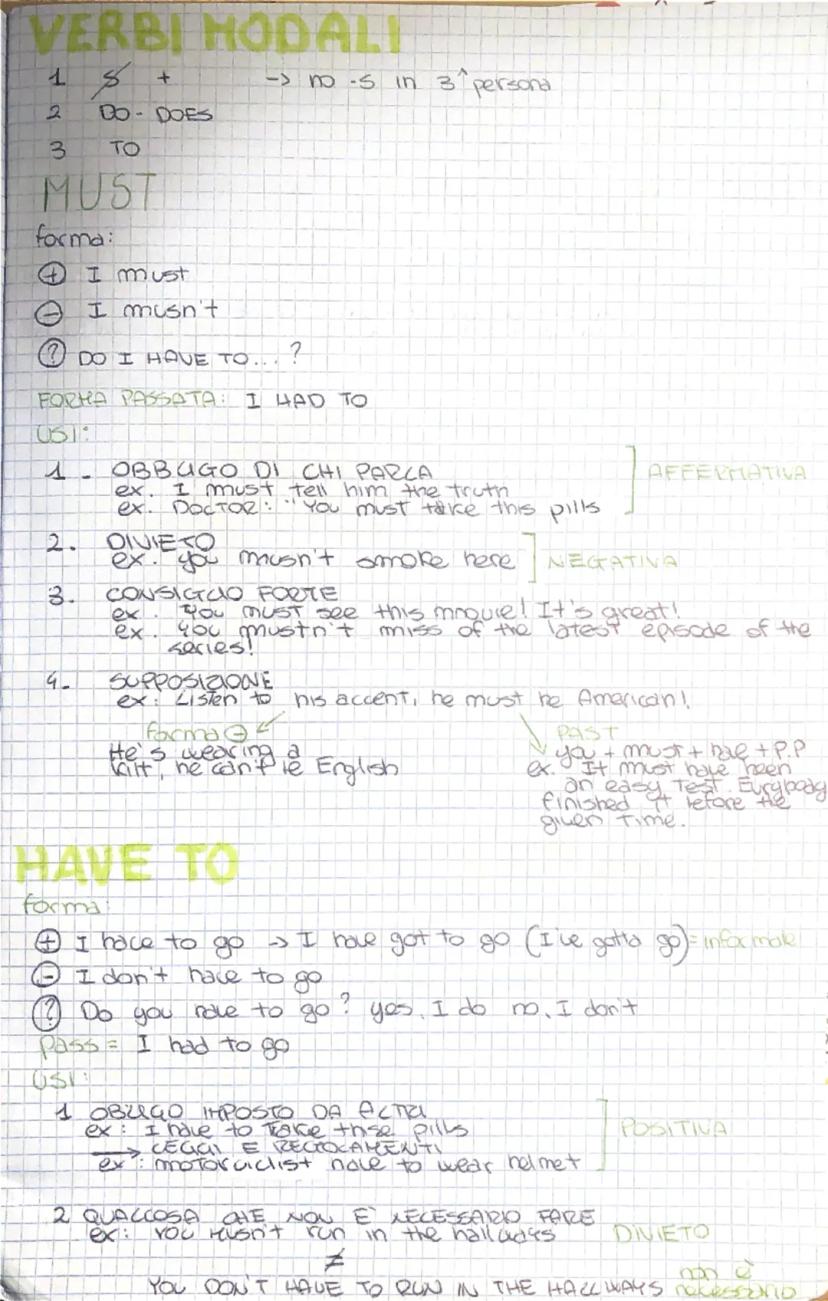 VERBI MODALI
1 S + -> no -s in 3^ persona
2 DO - DOES
3 TO
MUST
forma:
+ I must
- I musn't
? DO I HAVE TO...?
FORMA PASSATA: I HAD TO
USI:
1 - OBBLIGO DI CHI PARLA
ex. I must tell him the truth
ex. DOCTOR: "You must take this pills
AFFERMATIVA
2. DIVIETO
ex. you musn't smoke here
NEGATIVA
3. CONSIGLIO FORTE
ex. You must see this mouvie! It's great!
ex. You mustn't miss of the latest episode of the
series!
4. SUPPOSIZIONE
ex: Listen to his accent, he must be American!
forma -
He's wearing a
kilt, he can't be English
PAST
you + must + have + P.P
ex. It must have been
an easy test. Everybody
finished it before the
given time.
HAVE TO
forma:
+ I have to go -> I have got to go (I've gotta go) = informale
- I don't have to go
? Do you have to go? yes, I do no, I don't
pass = I had to go
USI:
1 OBBLIGO IMPOSTO DA ALTRI
ex: I have to take thise pills
-> LEGGI E REGOLAMENTI
ex: motorciclist have to wear helmet
POSITIVA
2 QUALCOSA CHE NON E' NECESSARIO FARE
ex: YOU musn't run in the hallways DIVIETO
≠
YOU DON'T HAVE TO RUN IN THE HALLWAYS non è necessario